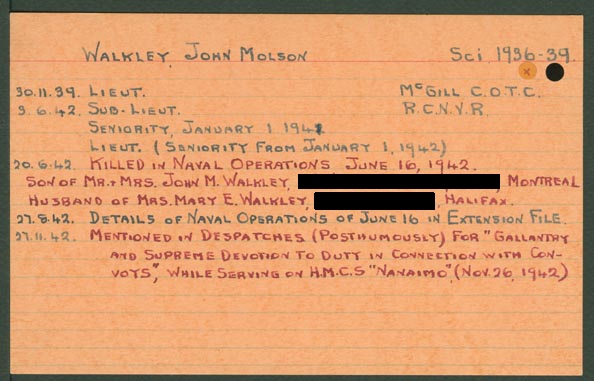 WALKLEY, JOHN MOLSON Sci. 1936-39.
30.11.39. LIEUT. McGILL C.O.T.C.
9.6.42. SUB-LIEUT. R.C.N.V.R.
SENIORITY, JANUARY 1 1942
LIEUT. (SENIORITY FROM JANUARY 1, 1942)
20.6.42. KILLED IN NAVAL OPERATIONS JUNE 16, 1942.
SON OF MR. & MRS. JOHN M. WALKLEY, , MONTREAL
HUSBAND OF MRS. MARY E. WALKLEY, , HALIFAX.
27.8.42. DETAILS OF NAVAL OPERATIONS OF JUNE 16 IN EXTENSION FILE.
27.11.42. MENTIONED IN DESPATCHES (POSTHUMOUSLY) FOR "GALLANTRY
AND SUPREME DEVOTION TO DUTY IN CONNECTION WITH CON-
VOYS", WHILE SERVING ON H.M.C.S "NANAIMO". (NOV. 26, 1942)